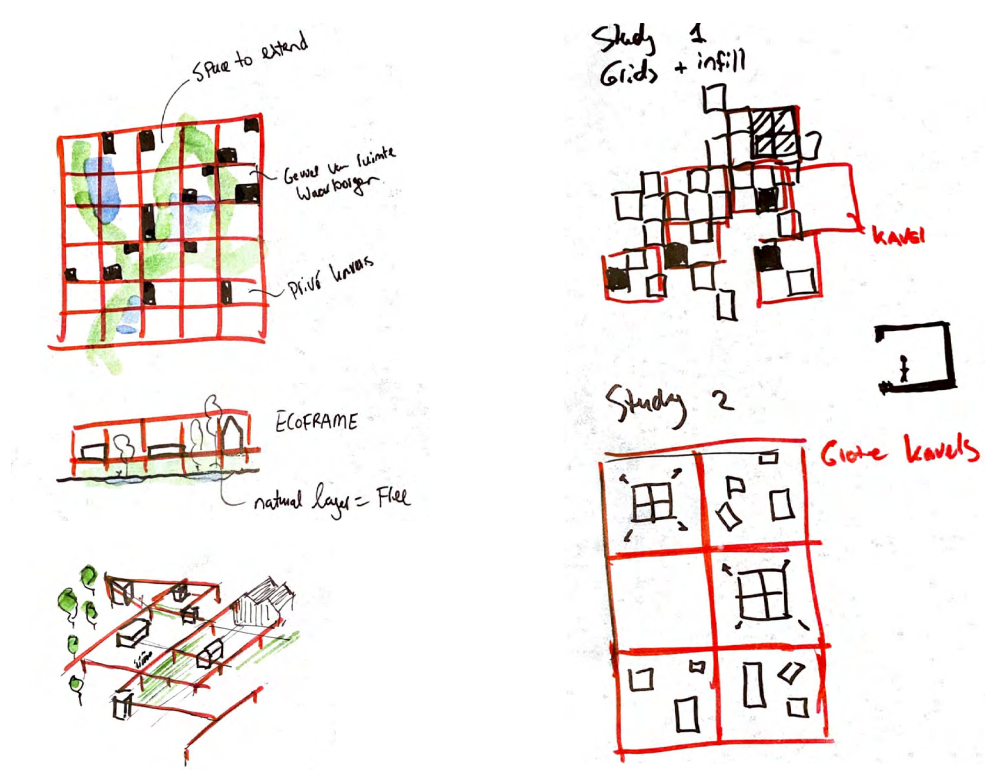 Space to extend
Gevoel van ruimte
Waarborgen
privé kavels
ECOFRAME
natural layer = Free
Study 1
Grids + infill
KAVEL
Study 2
Grote kavels